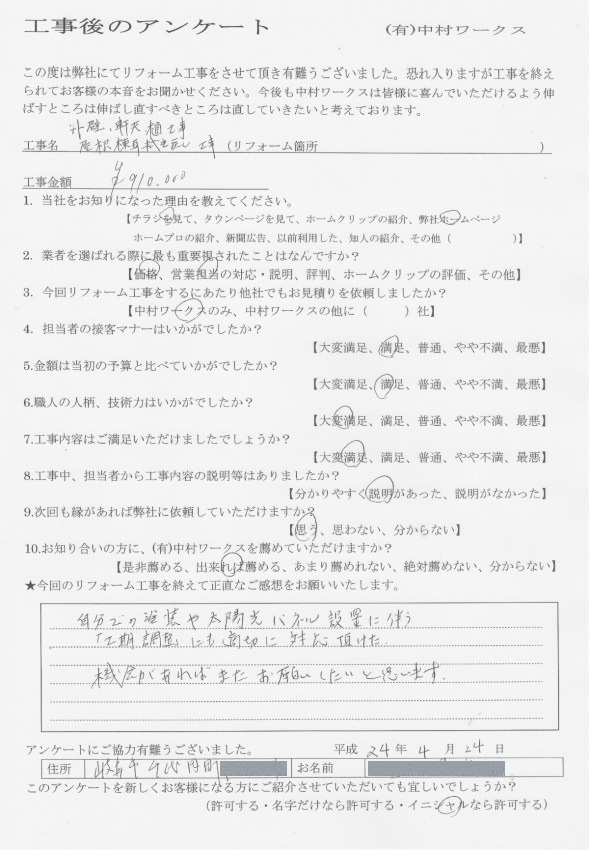 工事後のアンケート (有)中村ワークス
この度は弊社にてリフォーム工事をさせて頂き有難うございました。恐れ入りますが工事を終え
られてお客様の本音をお聞かせください。今後も中村ワークスは皆様に喜んでいただけるよう伸
ばすところは伸ばし直すべきところは直していきたいと考えております。
外壁、軒天樋工事
工事名 屋根 工事 (リフォーム箇所 )
工事金額 ¥910.000
1. 当社をお知りになった理由を教えてください。
【チラシを見て、タウンページを見て、ホームクリップの紹介、弊社ホームページ
ホームプロの紹介、新聞広告、以前利用した、知人の紹介、その他( )】
2. 業者を選ばれる際に最も重要視されたことはなんですか?
【価格、営業担当の対応・説明、評判、ホームクリップの評価、その他】
3. 今回リフォーム工事をするにあたり他社でもお見積りを依頼しましたか?
【中村ワークスのみ、中村ワークスの他に( )社】
4. 担当者の接客マナーはいかがでしたか?
【大変満足、満足、普通、やや不満、最悪】
5.金額は当初の予算と比べていかがでしたか?
【大変満足、満足、普通、やや不満、最悪】
6.職人の人柄、技術力はいかがでしたか?
【大変満足、満足、普通、やや不満、最悪】
7.工事内容はご満足いただけましたでしょうか?
【大変満足、満足、普通、やや不満、最悪】
8.工事中、担当者から工事内容の説明等はありましたか?
【分かりやすく説明があった、説明がなかった】
9.次回も縁があれば弊社に依頼していただけますか?
【思う、思わない、分からない】
10.お知り合いの方に、(有)中村ワークスを薦めていただけますか?
【是非薦める、出来れば薦める、あまり薦めれない、絶対薦めない、分からない】
★今回のリフォーム工事を終えて正直なご感想をお願いいたします。
自分での塗装や太陽光パネル設置に伴う
「工期調整」にも適切に対応頂けた.
機会があればまたお願いしたいと思います.
アンケートにご協力有難うございました。 平成 24 年 4 月 24 日
住所 岐阜市 お名前
このアンケートを新しくお客様になる方にご紹介させていただいても宜しいでしょうか?
(許可する・名字だけなら許可する・イニシャルなら許可する)